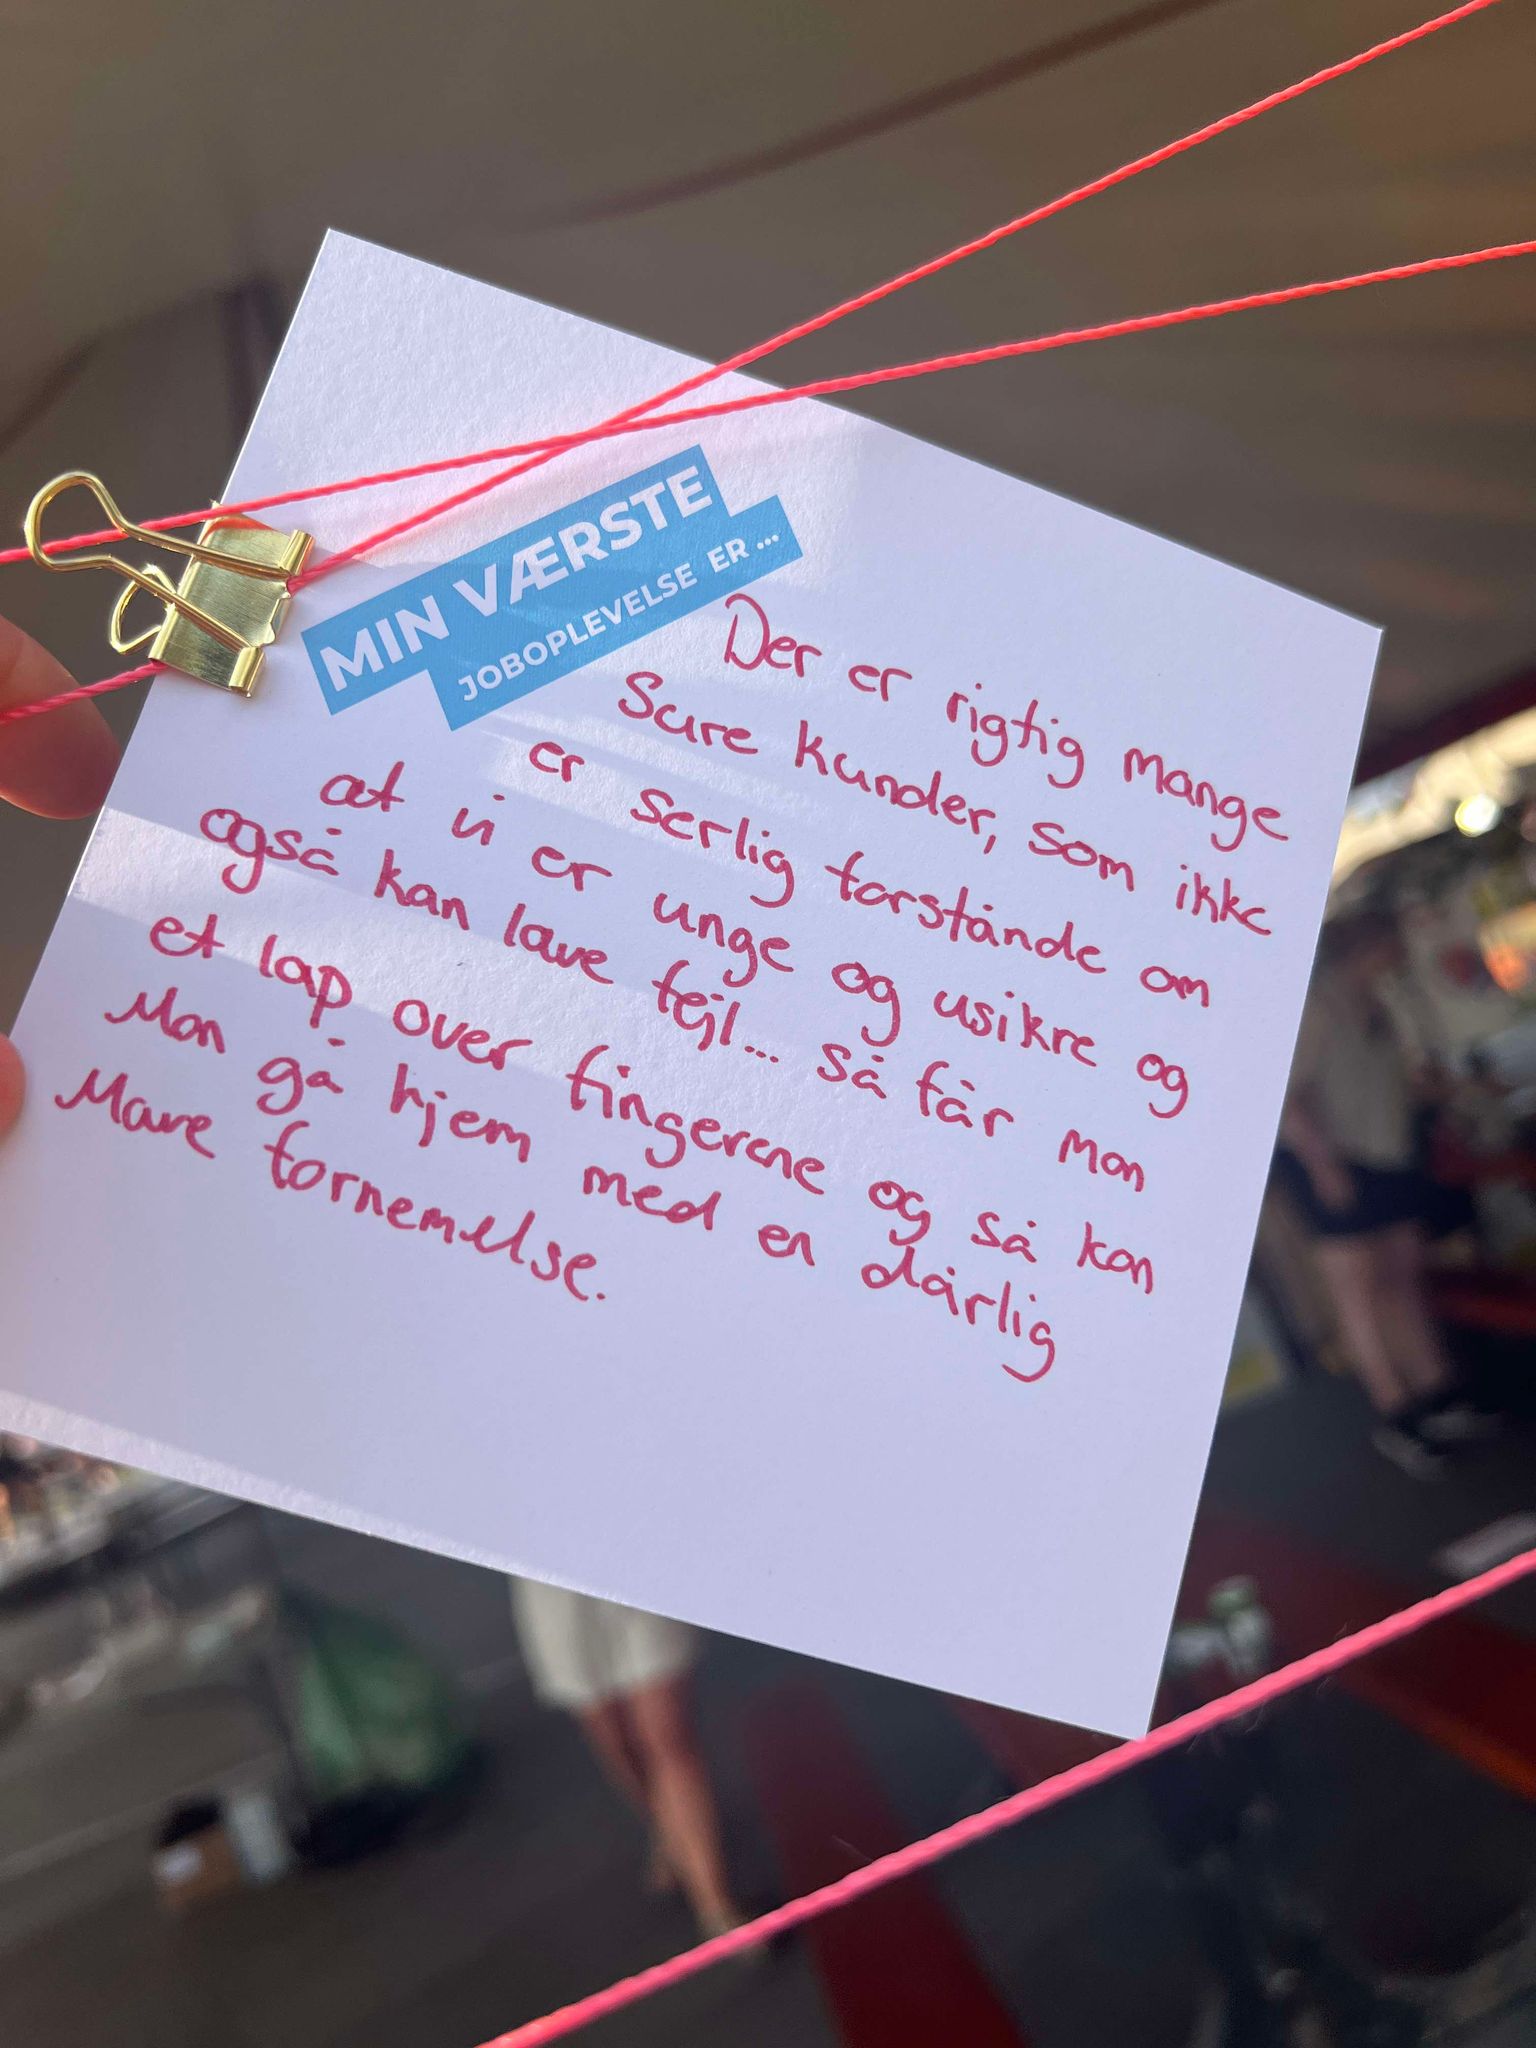 MIN VÆRSTE
JOBOPLEVELSE ER ...
Der er rigtig mange
Sure kunder, som ikke
er særlig forstånde om
at vi er unge og usikre og
også kan lave fejl... så får man
et lap over fingerene og så kan
Man gå hjem med en dårlig
Mave fornemelse.